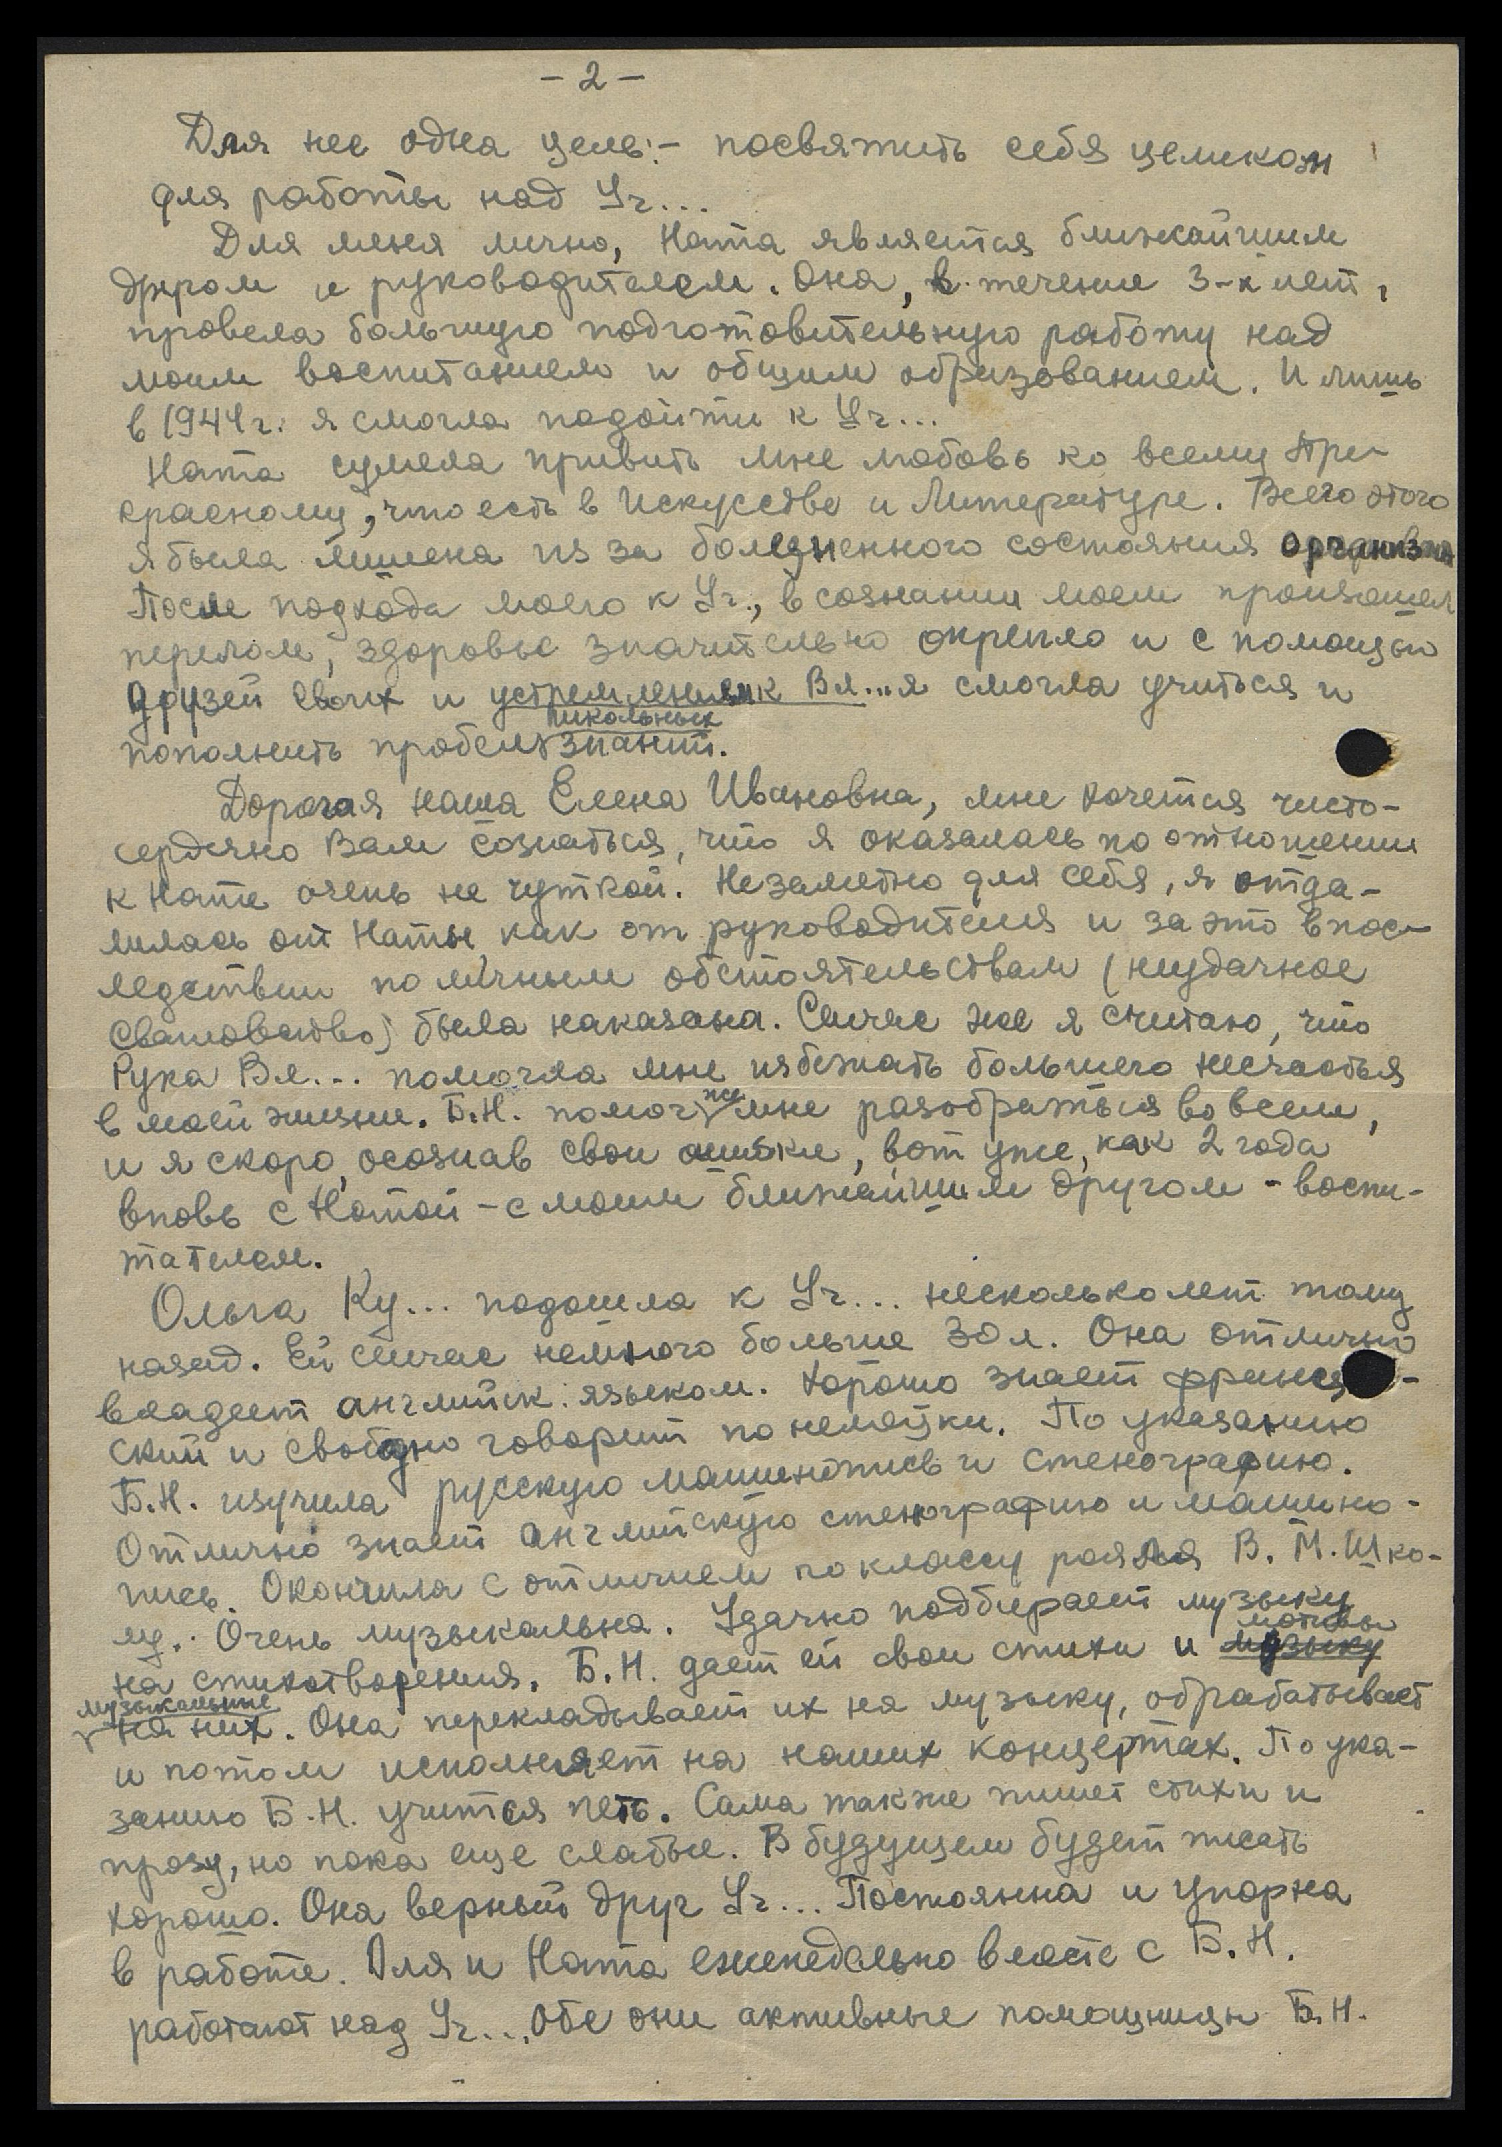 - 2 -
Для нее одна цель:- посвятить себя целиком
для работы над Уч...
Для меня лично, Ната является ближайшим
другом и руководителем. Она, в течение 3-х лет,
провела большую подготовительную работу над
моим воспитанием и общим образованием. И лишь
в 1944 г. я смогла подойти к Уч...
Ната сумела привить мне любовь ко всему Пре-
красному, что есть в Искусстве и Литературе. Всего этого
я была лишена из за болезненного состояния организма
После подхода моего к Уч., в сознании моем произошел
перелом, здоровье значительно окрепло и с помощью
друзей своих и устремлением к Вл... я смогла учиться и
пополнить пробелы школьных знаний.
Дорогая наша Елена Ивановна, мне хочется чисто-
сердечно Вам сознаться, что я оказалась по отношении
к Нате очень не чуткой. Незаметно для себя, я отда-
лилась от Наты, как от руководителя и за это впос-
ледствии по личным обстоятельствам (неудачное
сватовство) была наказана. Сейчас же я считаю, что
Рука Вл... помогла мне избежать большего несчастья
в моей жизни. Б.Н. помог же мне разобраться во всем,
и я скоро, осознав свои ошибки, вот уже, как 2 года
вновь с Натой - с моим ближайшим другом - воспи-
тателем.
Ольга Ку... подошла к Уч... несколько лет тому
назад. Ей сейчас немного больше 30 л. Она отлично
владеет английск. языком. Хорошо знает француз-
ский и свободно говорит по немецки. По указанию
Б.Н. изучила русскую машинопись и стенографию.
Отлично знает английскую стенографию и машино-
пись. Окончила с отличием по классу рояля В. М. Шко-
лу. Очень музыкальна. Удачно подбирает музыку
на стихотворения. Б.Н. дает ей свои стихи и музыку мотивы
музыкальные на них. Она перекладывает их на музыку, обрабатывает
и потом исполняет на наших концертах. По ука-
занию Б.Н. учится петь. Сама также пишет стихи и
прозу, но пока еще слабые. В будущем будет писать
хорошо. Она верный друг Уч... Постоянна и упорна
в работе. Оля и Ната еженедельно вместе с Б.Н.
работают над Уч... Обе они активные помощницы Б.Н.